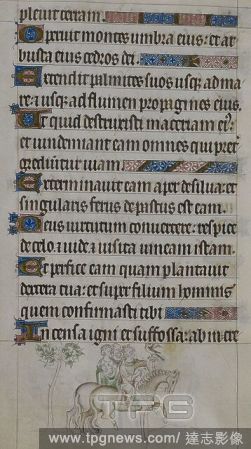 pleuit terram.
Operuit montes umbra eius: et ar
busta eius cedros dei.
Extendit palmites suos usque ad ma
re: usque ad flumen propagines eius.
Ut quid destruxisti maceriam ei⁹:
et uindemiant eam omnes qui pre
grediuntur uiam.
Exterminauit eam aper de silua: et
singularis ferus depastus est eam.
Deus uirtutum conuertere: respice
de celo. uide et uisita uineam istam.
Et perfice eam quam plantauit
dextera tua: et super filium hominis
quem confirmasti tibi
Incensa igni et suffossa: ab incre
TPG
www.tpgnews.com / 達志影像